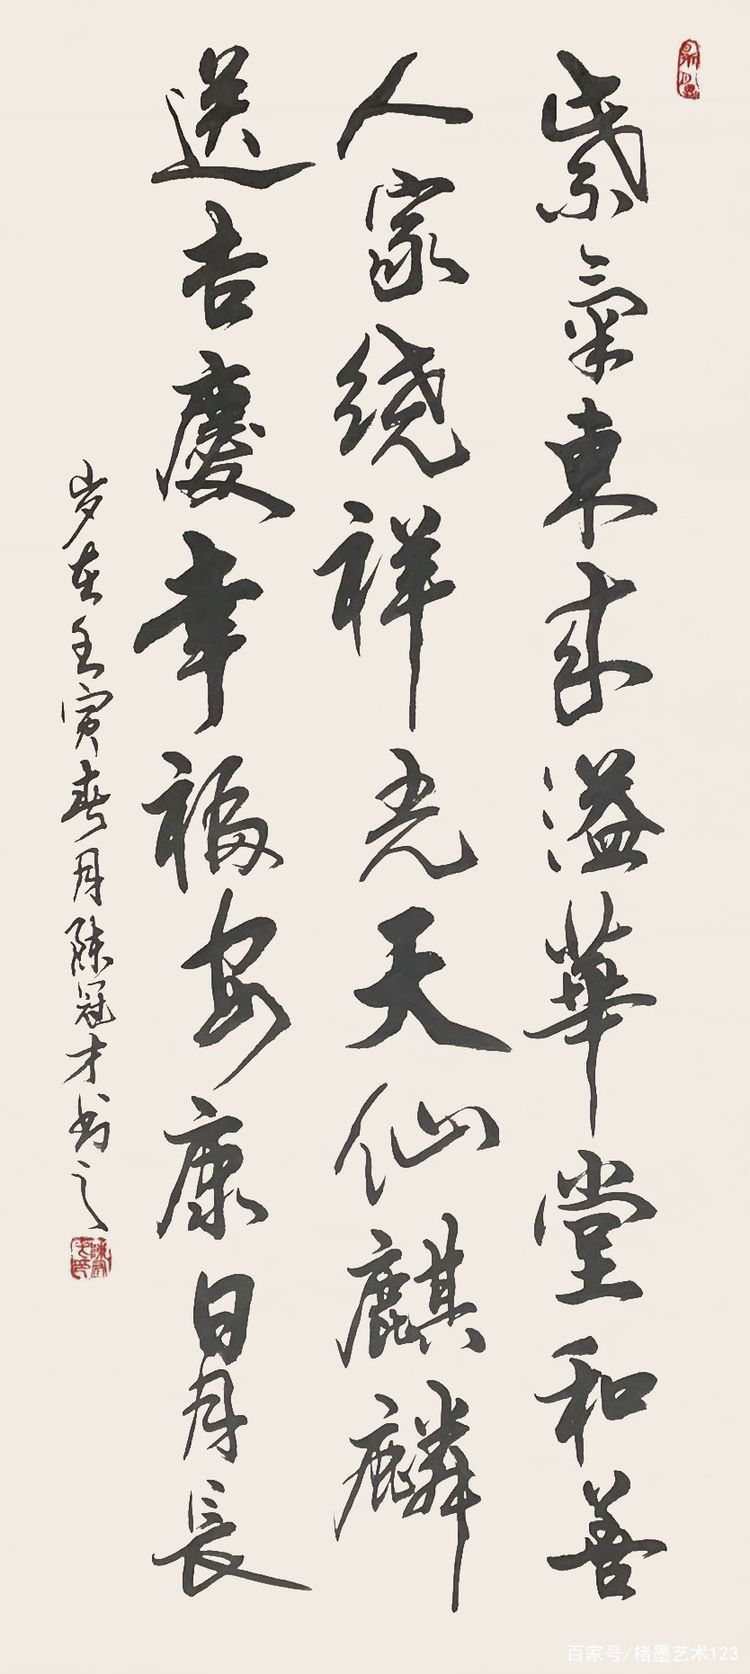 紫氣東來溢華堂和善
人家绕祥光天仙麒麟
送吉慶幸福安康日月長
岁在壬寅春月陈冠才书之
百家号/楮墨艺术123